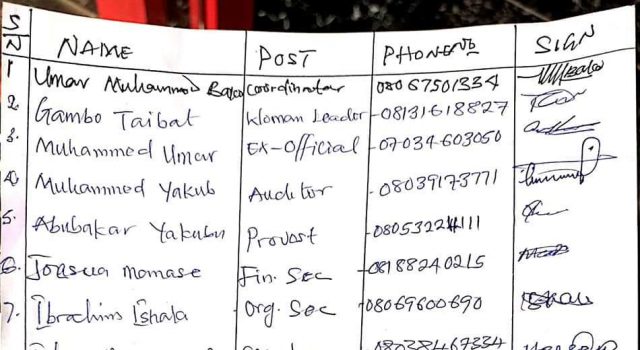 S/N NAME POST PHONE NO SIGN
1 Umar Muhammad Coordinator 08067501334
2. Gambo Taibat Woman Leader -08131618827
3. Muhammed Umar Ex-Official -07034603050
4. Muhammed Yakub Auditor -08039173771
5. Abubakar Yakubu Provost
6. Joasua momase Fin. Sec -08188240215
7. Ibrahim Ishala Org. Sec -08069600690
08038467334